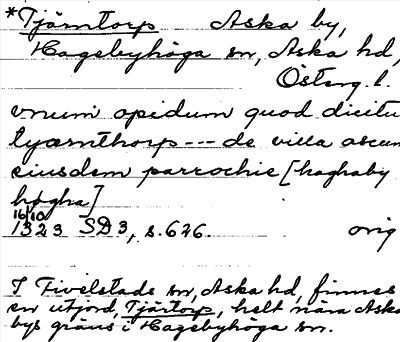 *Tjärntorp Aska by,
Hagebyhöga sn, Aska hd,
Österg. l.
vnum opidum quod dicitu
tyærnthorp --- de villa ascum
eiusdem parrochie [haghaby
høgha]
16/10
1323 SD3, s. 626. orig
I Fivelstads sn, Aska hd, finnes
en utjord, Tjärtorp, helt nära Aska
bys gräns i Hagebyhöga sn.